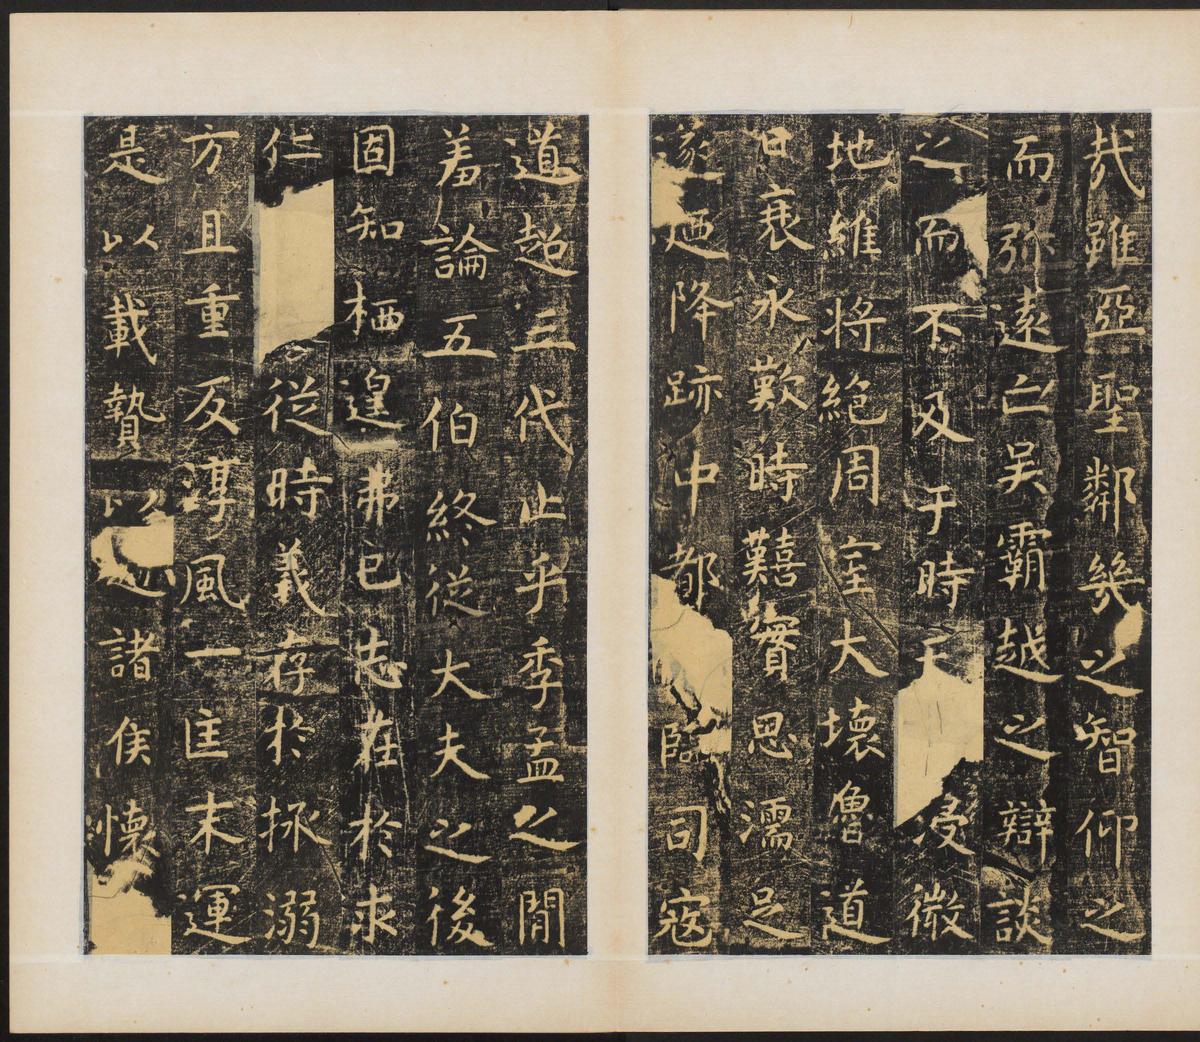 哉雖亞聖鄰幾之智仰之
而弥遠亡吴霸越之辯談
之而不及于時天浸微
地維將絶周室大壞魯道
日衰永歎時難實思濡足
遂迺降跡中都臨司寇
道超三代止乎季孟之閒
羞論五伯終從大夫之後
固知栖遑弗已志在於求
仁從時義存於拯溺
方且重反淳風一匡末運
是以載贄以諸侯懷